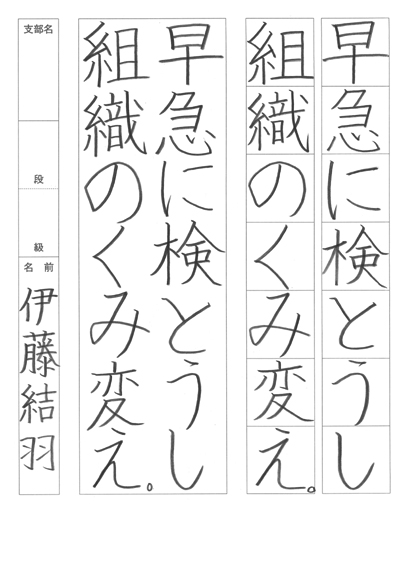 早急に検とうし
組織のくみ変え。
早急に検とうし
組織のくみ変え。
支部名
段
級
名前
伊藤結羽